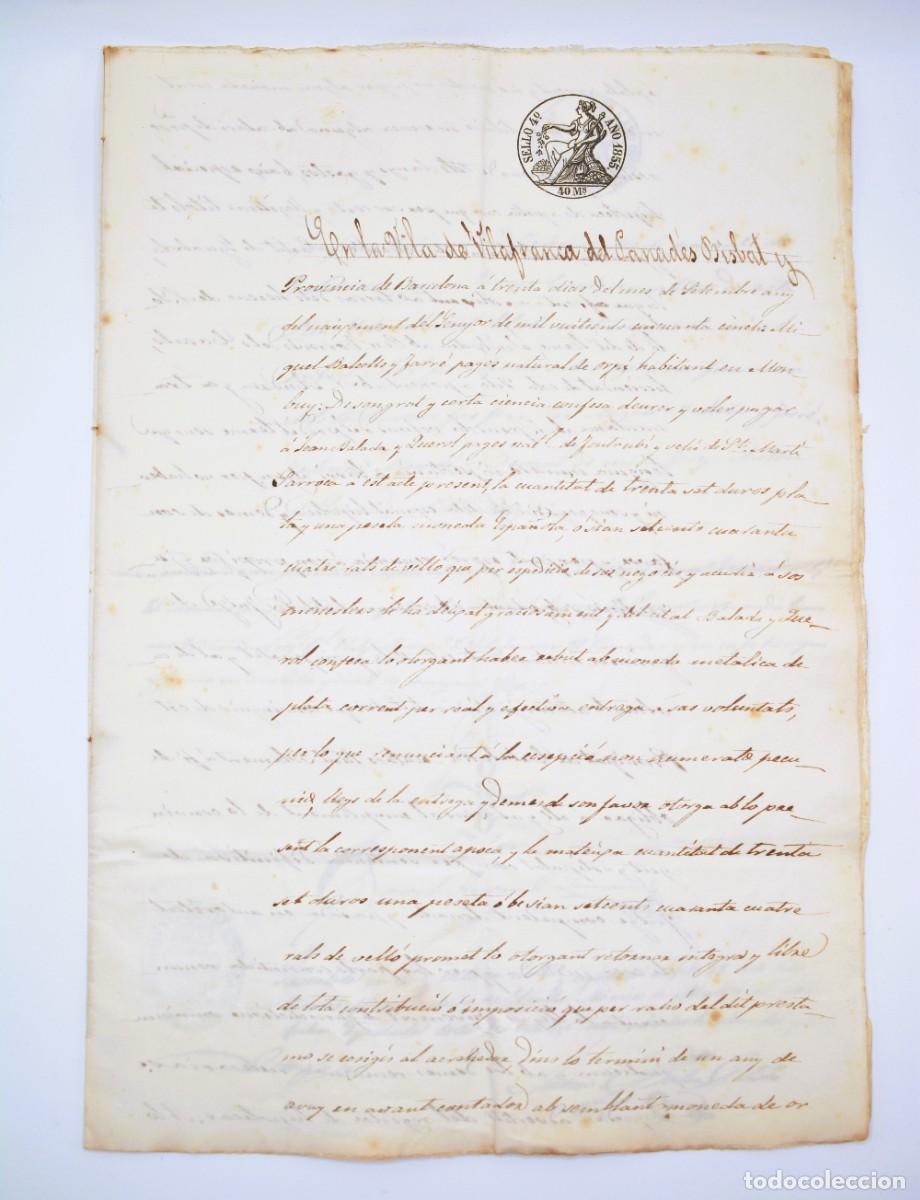 SELLO 4º AÑO 1855.
40 Ms
En la Vila de Vilafranca del Panadés Bisbat y
Provincia de Barcelona á trenta dias del mes de Setembre any
del naixement del Senyor de mil vuitcents cincuanta cinch: Mi-
quel Balcells y Farré pagés natural de Orpí habitant en Mon-
buy: De son grat y certa ciencia confesa deurer y voler pagar
á Joan Balada y Querol pagés natl. de y vehí de St. Martí
Sarroca á est acte present, la cuantitat de trenta set duros pla-
ta y una peseta moneda Española, o sian setcents cuaranta
cuatre rals de velló que per expedició de sos negocis y acudir á sos
menesters li ha deixat graciosament y del cital Balada y Que-
rol confesa lo otorgant haber rebut ab moneda metalica de
plata corrent per real y efectiva entrega a sas voluntats,
per lo que renunciant á la excepció non numerata pecu-
nia, lleys de la entrega y demes de son favor otorga ab lo pre-
sent la corresponent apoca, y la mateixa cuantitat de trenta
set duros una peseta ó be sian setcents cuaranta cuatre
rals de velló promet lo otorgant retornar integra y libre
de tota contribució ó imposició que per rahó del dit presta-
mo se exigís al acrehedor dins lo termini de un any de
avuy en avant contador ab semblant moneda de or
todocoleccion